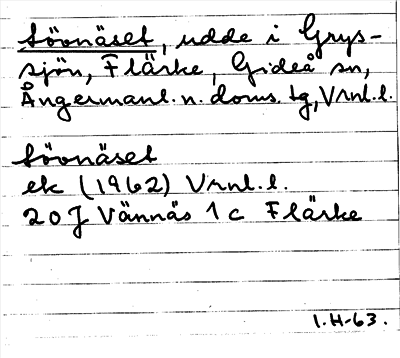 Lövnäset, udde i Grys-
sjön, Flärke, Gideå sn,
Ångermanl. n. doms. tg, Vrnl. l.
Lövnäset
ek (1962) Vrnl. l.
20 J Vännäs 1 c Flärke
I.H-63.